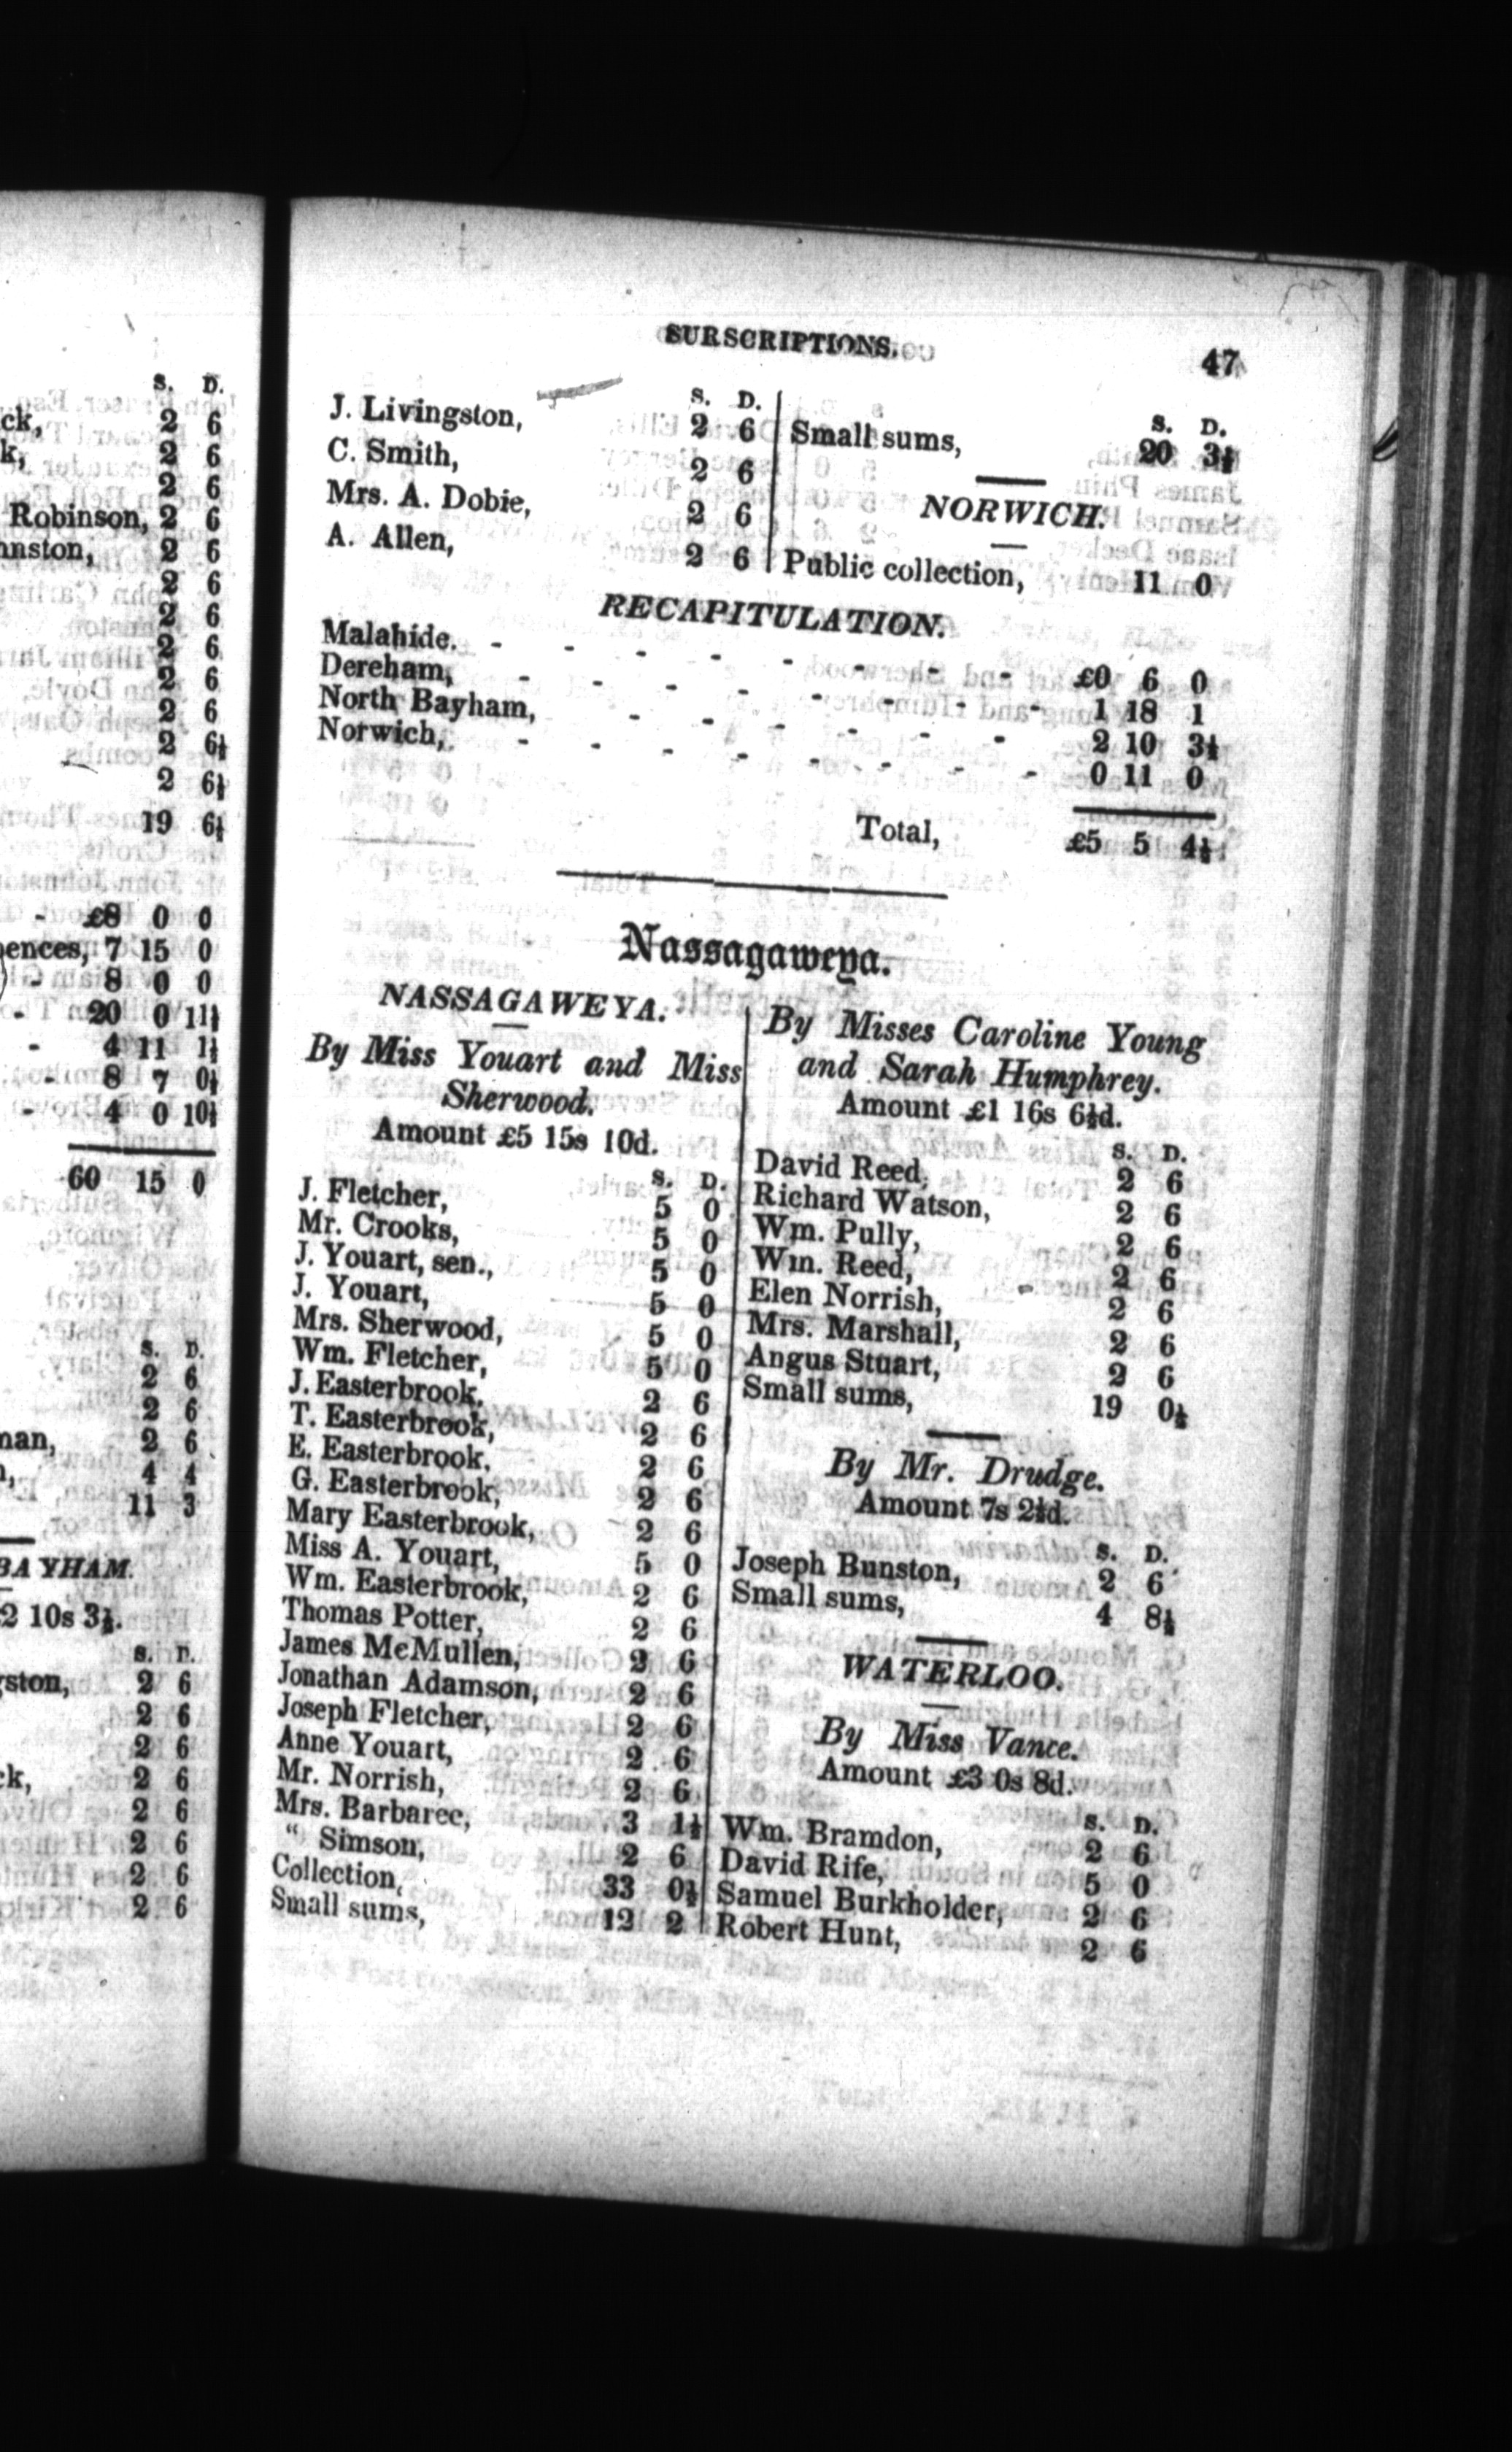 S. D.
ck, 2 6
k, 2 6
2 6
Robinson, 2 6
hnston, 2 6
2 6
2 6
2 6
2 6
2 6
2 6½
2 6½
19 6½
- £8 0 0
ences, 7 15 0
- 8 0 0
- 20 0 11½
- 4 11 1½
- 8 7 0½
- 4 0 10½
60 15 0
S. D.
2 6
2 6
man, 2 6
4 4
11 3
BAYHAM.
2 10s 3½.
S. D.
gston, 2 6
2 6
2 6
ck, 2 6
2 6
2 6
2 6
2 6
SURSCRIPTIONS.
47
S. D.
J. Livingston, 2 6
C. Smith, 2 6
Mrs. A. Dobie, 2 6
A. Allen, 2 6
S. D.
Small sums, 20 3½
NORWICH.
Public collection, 11 0
RECAPITULATION.
Malahide. - - - - - - - - £0 6 0
Dereham, - - - - - - - - 1 18 1
North Bayham, - - - - - - 2 10 3½
Norwich, - - - - - - - - 0 11 0
Total, £5 5 4½
Nassagaweya.
NASSAGAWEYA.
By Miss Youart and Miss
Sherwood.
Amount £5 15s 10d.
S. D.
J. Fletcher, 5 0
Mr. Crooks, 5 0
J. Youart, sen., 5 0
J. Youart, 5 0
Mrs. Sherwood, 5 0
Wm. Fletcher, 5 0
J. Easterbrook, 2 6
T. Easterbrook, 2 6
E. Easterbrook, 2 6
G. Easterbrook, 2 6
Mary Easterbrook, 2 6
Miss A. Youart, 5 0
Wm. Easterbrook, 2 6
Thomas Potter, 2 6
James McMullen, 2 6
Jonathan Adamson, 2 6
Joseph Fletcher, 2 6
Anne Youart, 2 6
Mr. Norrish, 2 6
Mrs. Barbaree, 3 1½
" Simson, 2 6
Collection, 33 0½
Small sums, 12 2
By Misses Caroline Young
and Sarah Humphrey.
Amount £1 16s 6½d.
S. D.
David Reed, 2 6
Richard Watson, 2 6
Wm. Pully, 2 6
Wm. Reed, 2 6
Elen Norrish, 2 6
Mrs. Marshall, 2 6
Angus Stuart, 2 6
Small sums, 19 0½
By Mr. Drudge.
Amount 7s 2½d.
S. D.
Joseph Bunston, 2 6
Small sums, 4 8½
WATERLOO.
By Miss Vance.
Amount £3 0s 8d.
S. D.
Wm. Bramdon, 2 6
David Rife, 5 0
Samuel Burkholder, 2 6
Robert Hunt, 2 6